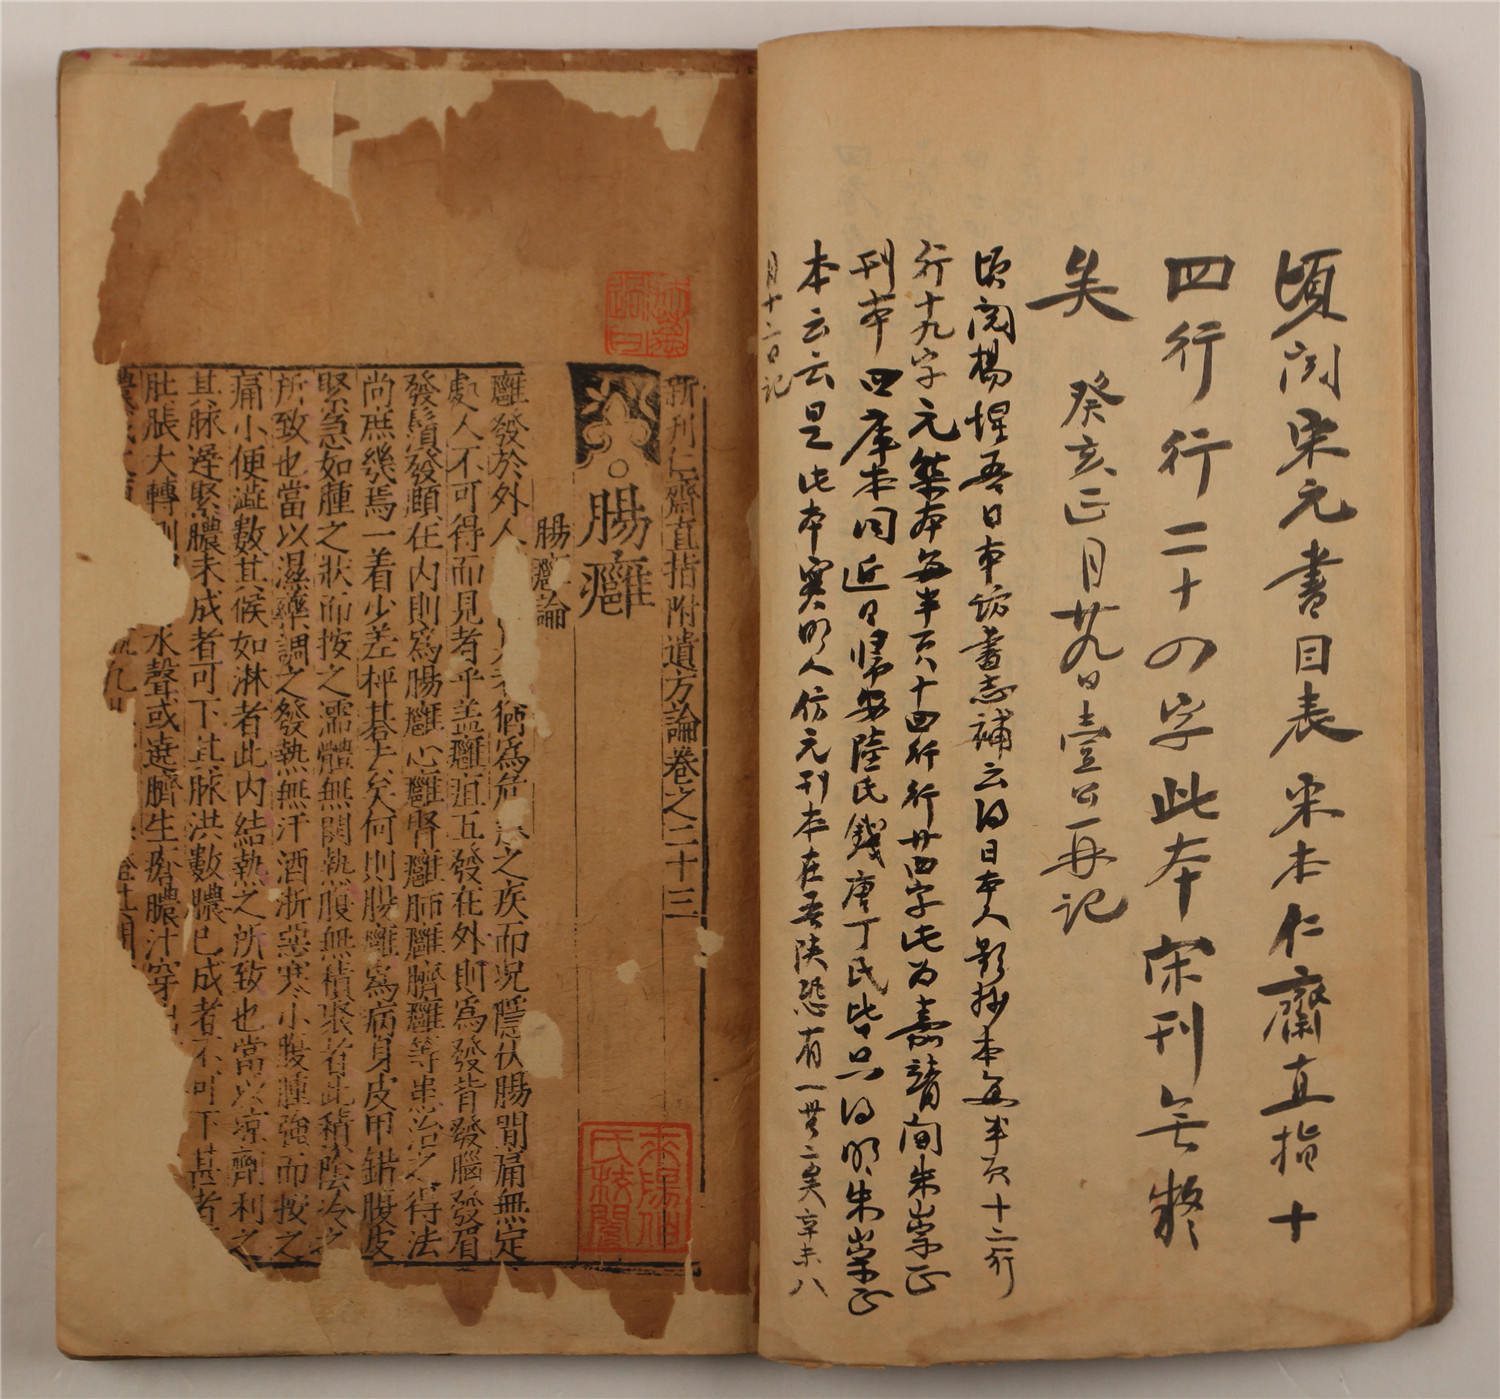 頃閱宋元書目表宋本仁齋直指十
四行行二十四字此本宋刊無疑
矣 癸亥正月廿九日壹公再記
頃閱楊惺吾日本訪書志補云得日本人影抄本每半頁十二行
行十九字元槧本每半頁十四行行廿四字此為嘉靖間朱崇正
刊本四庫本同近日歸安陸氏錢唐丁氏皆只得明朱崇正
本云云是此本實明人仿元刊本在吾陝恐有一無二矣辛未八
月十二日記
新刊仁齋直指附遺方論卷之二十三
腸癰
腸癰論
癰發於外人猶為危之疾而況隱伏腸間痛無定
處人不可得而見者乎蓋癰疽五發在外則為發背發腦發眉
發鬚發頤在內則為腸癰心癰腎癰肺癰臍癰等患治之得法
尚庶幾焉一着少差枰碁去矣何則腸癰為病身皮甲錯腹皮
緊急如腫之狀而按之濡體無関熱腹無積聚者此積陰冷之
所致也當以溫藥調之發熱無汗洒淅惡寒小腹腫強而按之
痛小便澁數其候如淋者此內結熱之所致也當以涼劑利之
其脉遲緊膿未成者可下其脉洪數膿已成者不可下甚者
肚脹大轉側水聲或遶臍生瘡膿汁穿出